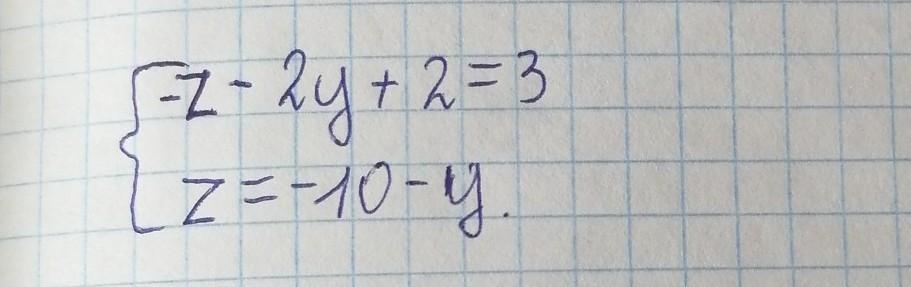 -z - 2y + 2 = 3
z = -10 - y.